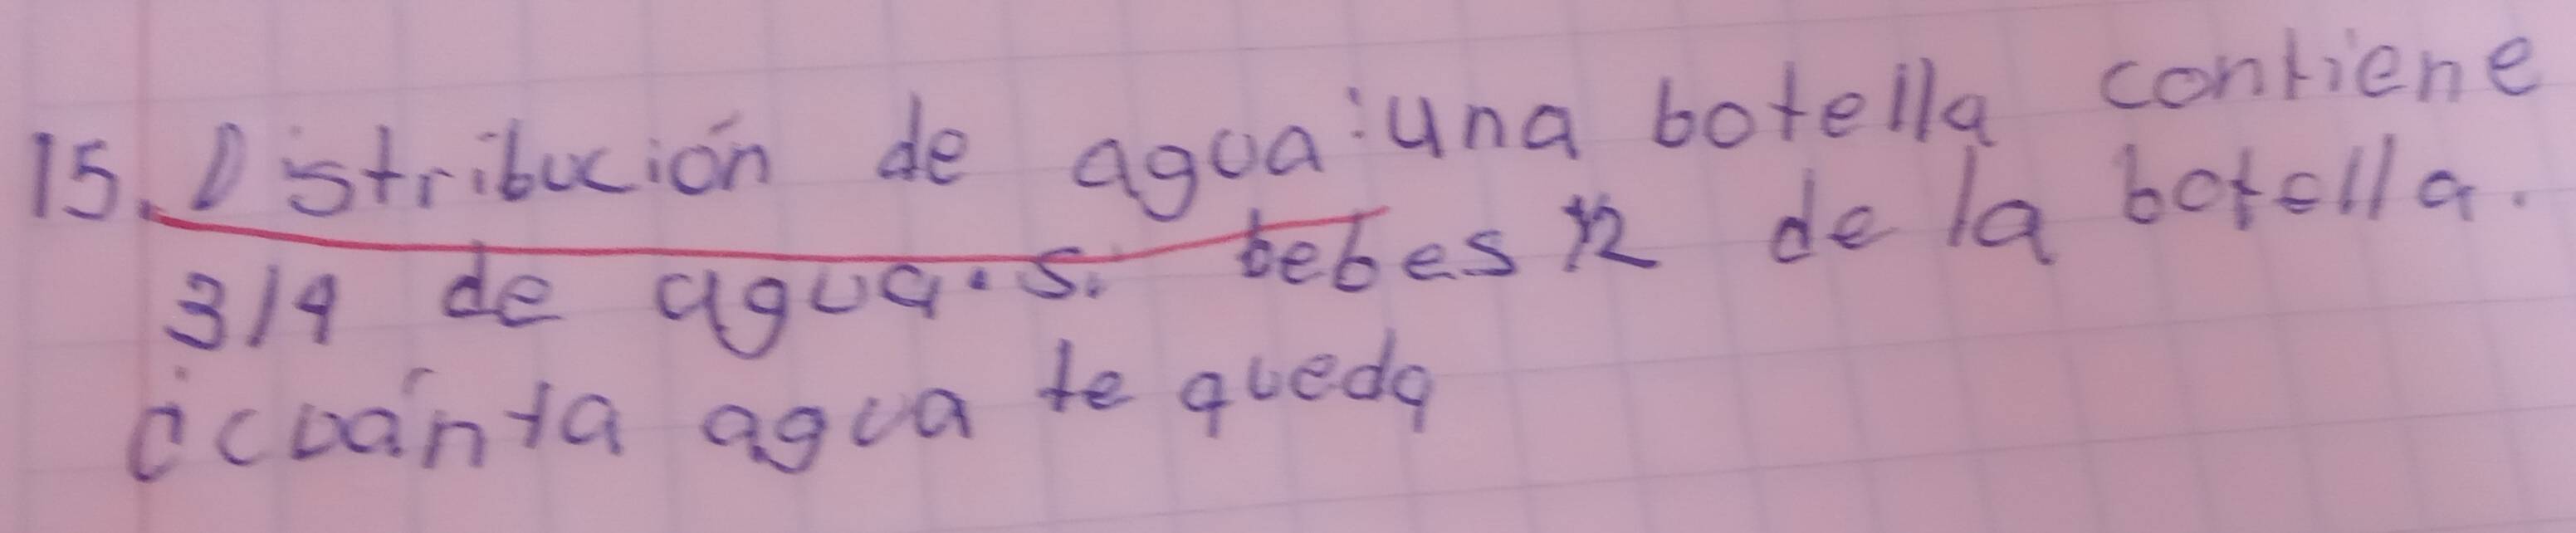 15. Distribución de agua: una botella contiene
3/4 de agua. si bebes 1/2 de la botella.
¿cuánta agua te queda